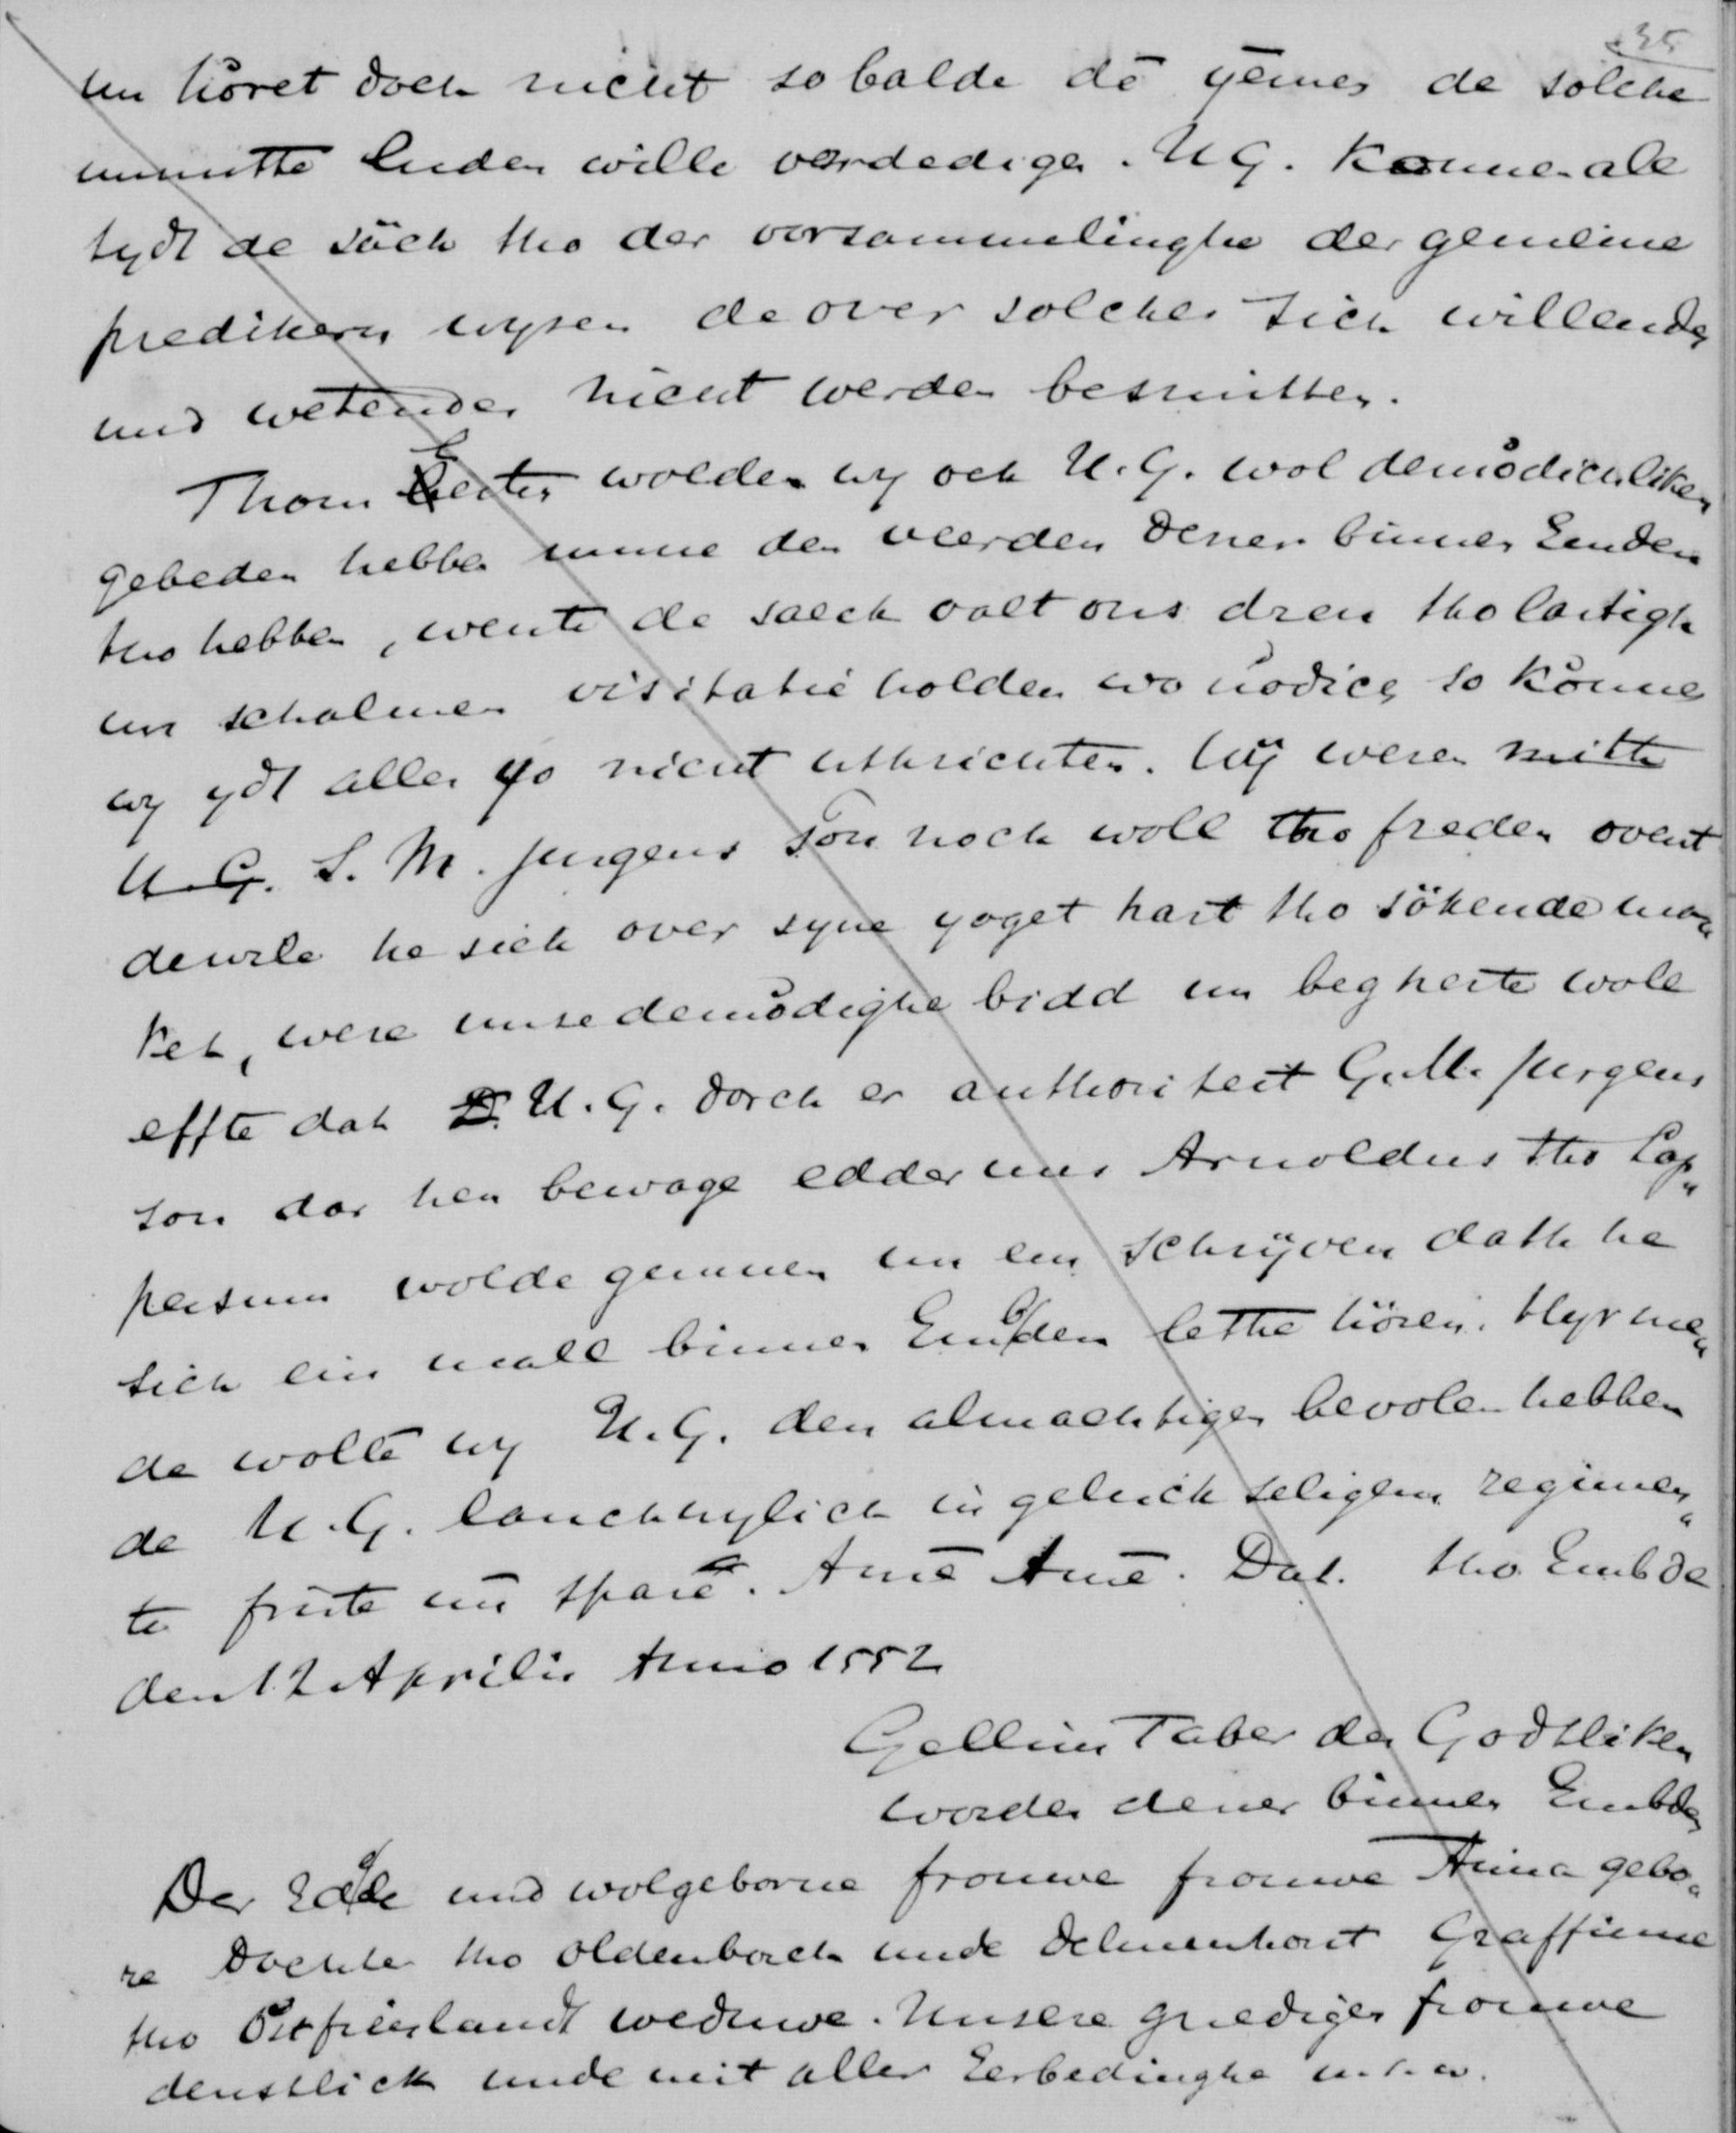 35
un höret doch nicht so balde dē yenen de solche
unnutte luden wille vordedigen. U G. konne alle
tydt de säck tho der vorsammelinghe der gemeine
predikern wysen de over solcher sich willendes
und wetendes nicht werden besmitten.
Thom Eersten wolden wy ock U. G. wol demödichliken
gebeden hebben umme den veerden Dener binnen Emden
tho hebben, wente de saeck valt ons dren tho lastigh
un scholmen visitatie holden wo nödich so können
wy ydt allen yo nicht uthrichten. Wÿ weren mitth
U. G. S. M. Jurgens son noch woll tho freden overst
dewile he sick over syne yoget hart tho sökende ma=
ket, were unse demödighe bidd un begherte wole
effte dat D. U. G. dorch er authoriteit G. M. Jurgens
son dar hen bewage edder uns Arnoldus tho Lop=
persum wolde gunnen un em schryven dath he
sich ein mall binnen Embden lethe hören. Hyr me=
de wolle wy U. G. den almachtigen bevolen hebben
de U. G. lanckwylich in geluckseligem regimen=
te friste un spare. Amē Amē. Dat. tho Embde
den 12 Aprilis Anno 1552
Gellius Faber der Godtliken
wordes dener binnen Embden
Der Edele und wolgeborne frouwe frouwe Anna gebo=
re Dochter tho Oldenborch unde Delmenhorst Graffinne
tho Ostfrieslandt weduwe. Unsere gnedigen frouwe
denstlick unde mit aller Eerbedinghe u. s. w.